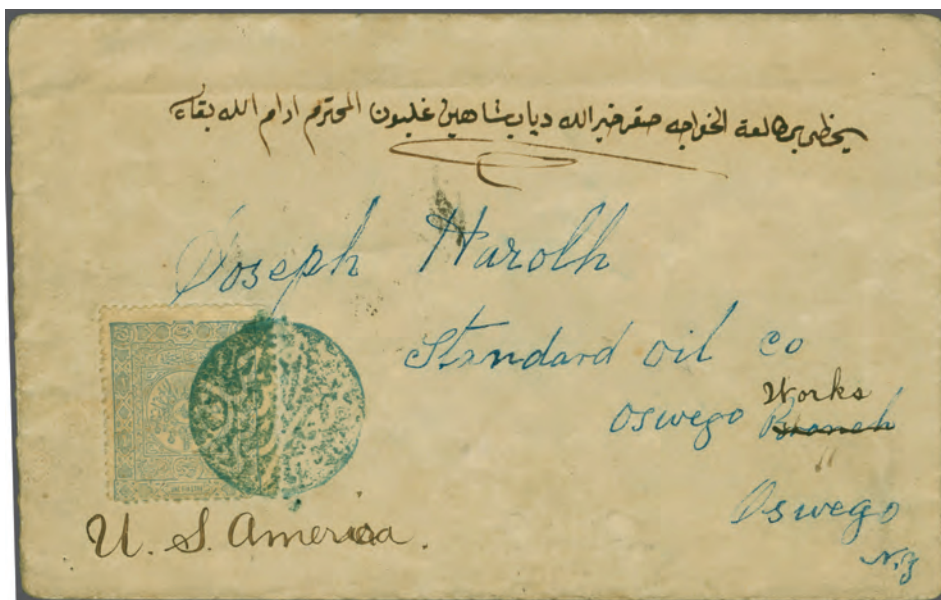 يحظى بمطالعة الخواجه صقر خير الله دياب شاهين غلبون المحترم ادام الله بقاه
Joseph Harolh
Standard oil co
Works
Oswego Branch
Oswego
N.Y
U. S. America.